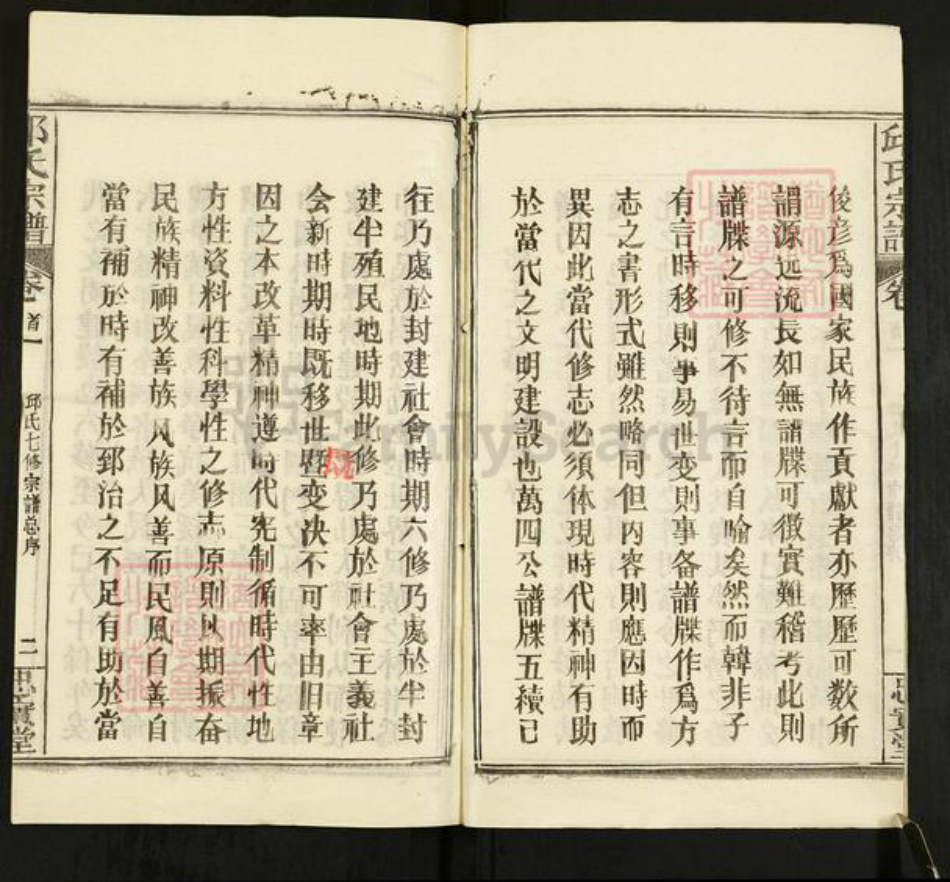 邱氏宗譜
卷
忠實堂
俊彦爲國家民族作貢獻者亦歷歷可数所
謂源远流長如無譜牒可徵實難稽考此則
譜牒之可修不待言而自喻矣然而韓非子
有言時移則事易世变則事备譜牒作爲方
志之書形式雖然略同但内容則應因時而
異因此當代修志必须体現時代精神有助
於當代之文明建設也萬四公譜牒五續已
往乃處於封建社會時期六修乃處於半封
建半殖民地時期此修乃處於社會主義社
会新時期時既移世暨变决不可率由旧章
既
因之本改革精神遵時代宪制循時代性地
方性資料性科學性之修志原則以期振奋
民族精神改善族风族风善而民風自善自
當有補於時有補於郅治之不足有助於當
邱氏宗譜
卷首一
邱氏七修宗譜总序
二
忠實堂
FamilySearch